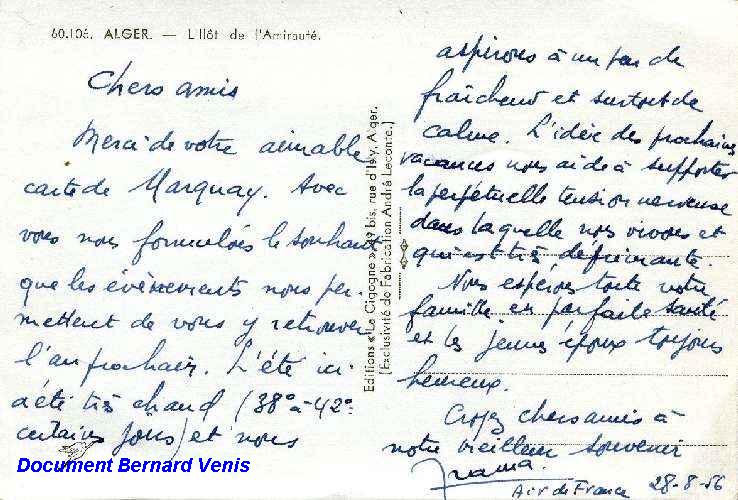 60.106. ALGER. — L'Ilôt de l'Amirauté.
Chers amis
Merci de votre aimable
carte de Marquay. Avec
vous nous formulons le souhait
que les évènements nous per-
mettent de vous y retrouver
l'an prochain. L'été ici
a été très chaud (38° à 42°
certains jours) et nous
aspirons à un peu de
fraîcheur et surtout de
calme. L'idée des prochaines
vacances nous aide à supporter
la perpétuelle tension nerveuse
dans laquelle nous vivons et
qui est très déprimante.
Nous espérons toute votre
famille en parfaite santé
et les jeunes époux toujours
heureux.
Croyez chers amis à
notre meilleur souvenir
Air de France 28-8-56
Editions « La Cigogne » 49 bis, rue d'Isly, Alger.
(Exclusivité de Fabrication André Leconte.)
Document Bernard Venis